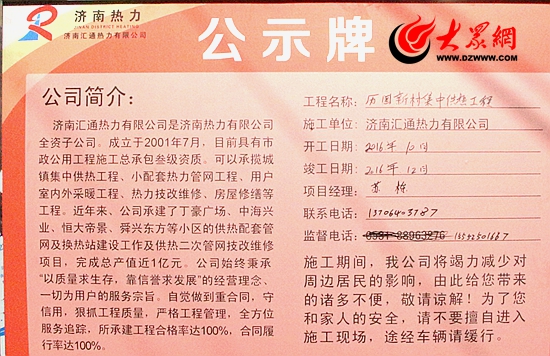 济南热力
JINAN DISTRICT HEATING
济南汇通热力有限公司
公示牌
大众網
WWW.DZWWW.COM
公司简介:
济南汇通热力有限公司是济南热力有限公司
全资子公司。成立于2001年7月，目前具有市
政公用工程施工总承包叁级资质。可以承揽城
镇集中供热工程、小配套热力管网工程、用户
室内外采暖工程、热力技改维修、房屋修缮等
工程。近年来、公司承建了丁豪广场、中海兴
业、恒大帝景、舜兴东方等小区的供热配套管
网及换热站建设工作及供热二次管网技改维修
项目，完成总产值近1亿元。公司始终秉承
“以质量求生存，靠信誉求发展”的经营理念、
一切为用户的服务宗旨。自觉做到重合同，守
信用，狠抓工程质量，严格工程管理，全方位
服务追踪，所承建工程合格率达100%，合同履
行率达100%。
工程名称: 历园新村集中供热工程
施工单位: 济南汇通热力有限公司
开工日期: 2016年10月
竣工日期: 2016年12月
项目经理: 苏栋
联系电话: 13706403787
监督电话: 0531-88963276
施工期间，我公司将竭力减少对
周边居民的影响，由此给您带来
的诸多不便，敬请谅解！为了您
和家人的安全，请不要擅自进入
施工现场，途经车辆请缓行。